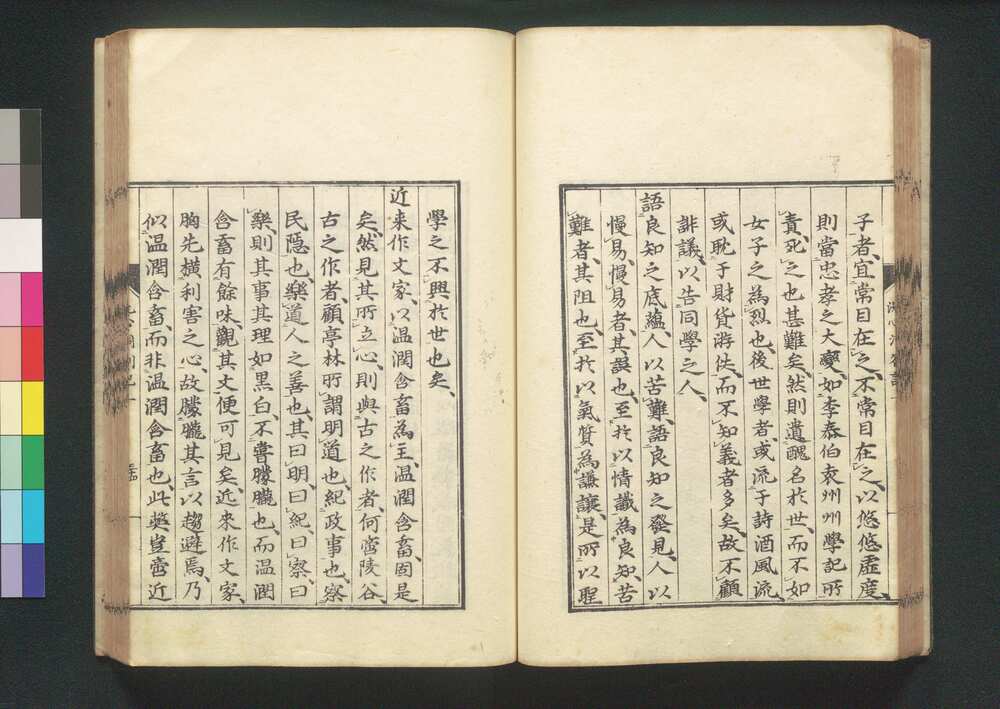 子者、宜常目在之、不常目在之、以悠悠虛度、
則當忠孝之大變、如李泰伯袁州州學記所
責、死之也甚難矣、然則遺醜名於世、而不如
女子之為烈也、後世學者或流于詩酒風流、
或耽于財貨游佚、而不知義者多矣、故不顧
誹議、以告同學之人、
語良知之底蘊、人以苦難、語良知之發見、人以
慢易、慢易者、其誤也、至於以情識為良知、苦
難者、其阻也、至於以氣質為謙讓、是所以聖
學之不興於世也矣、
近来作文家、以温潤含畜為主、温潤含畜、固是
矣、然見其所立心、則與古之作者、何啻陵谷、
古之作者、顧亭林所謂明道也、紀政事也、察
民隱也、樂道人之善也、其曰明、曰紀、曰察、曰
樂、則其事其理如黒白、不嘗朦朧也、而温潤
含畜有餘味、觀其文、便可見矣、近来作文家、
胸先横利害之心、故朦朧其言以趨避焉、乃
似温潤含畜、而非温潤含畜也、此獘豈啻近